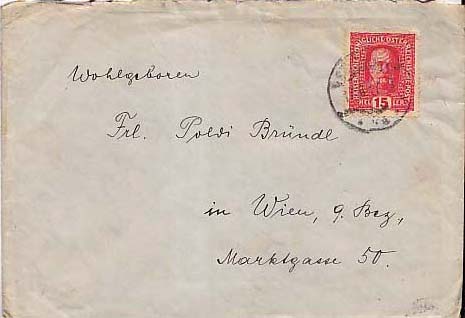 Wohlgeboren
Frl. Poldi Bründl
in Wien, 9. Bez,
Marktgasse 50.
15